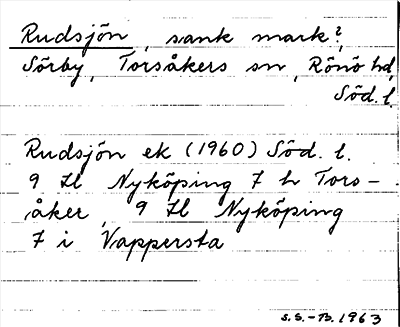 Rudsjön, sank mark?,
Sörby, Torsåkers sn, Rönö hd,
Söd. l.
Rudsjön ek (1960) Söd. l.
9 H Nyköping 7 h Tors-
åker, 9 H Nyköping
7 i Vappersta
S.S.-B. 1963